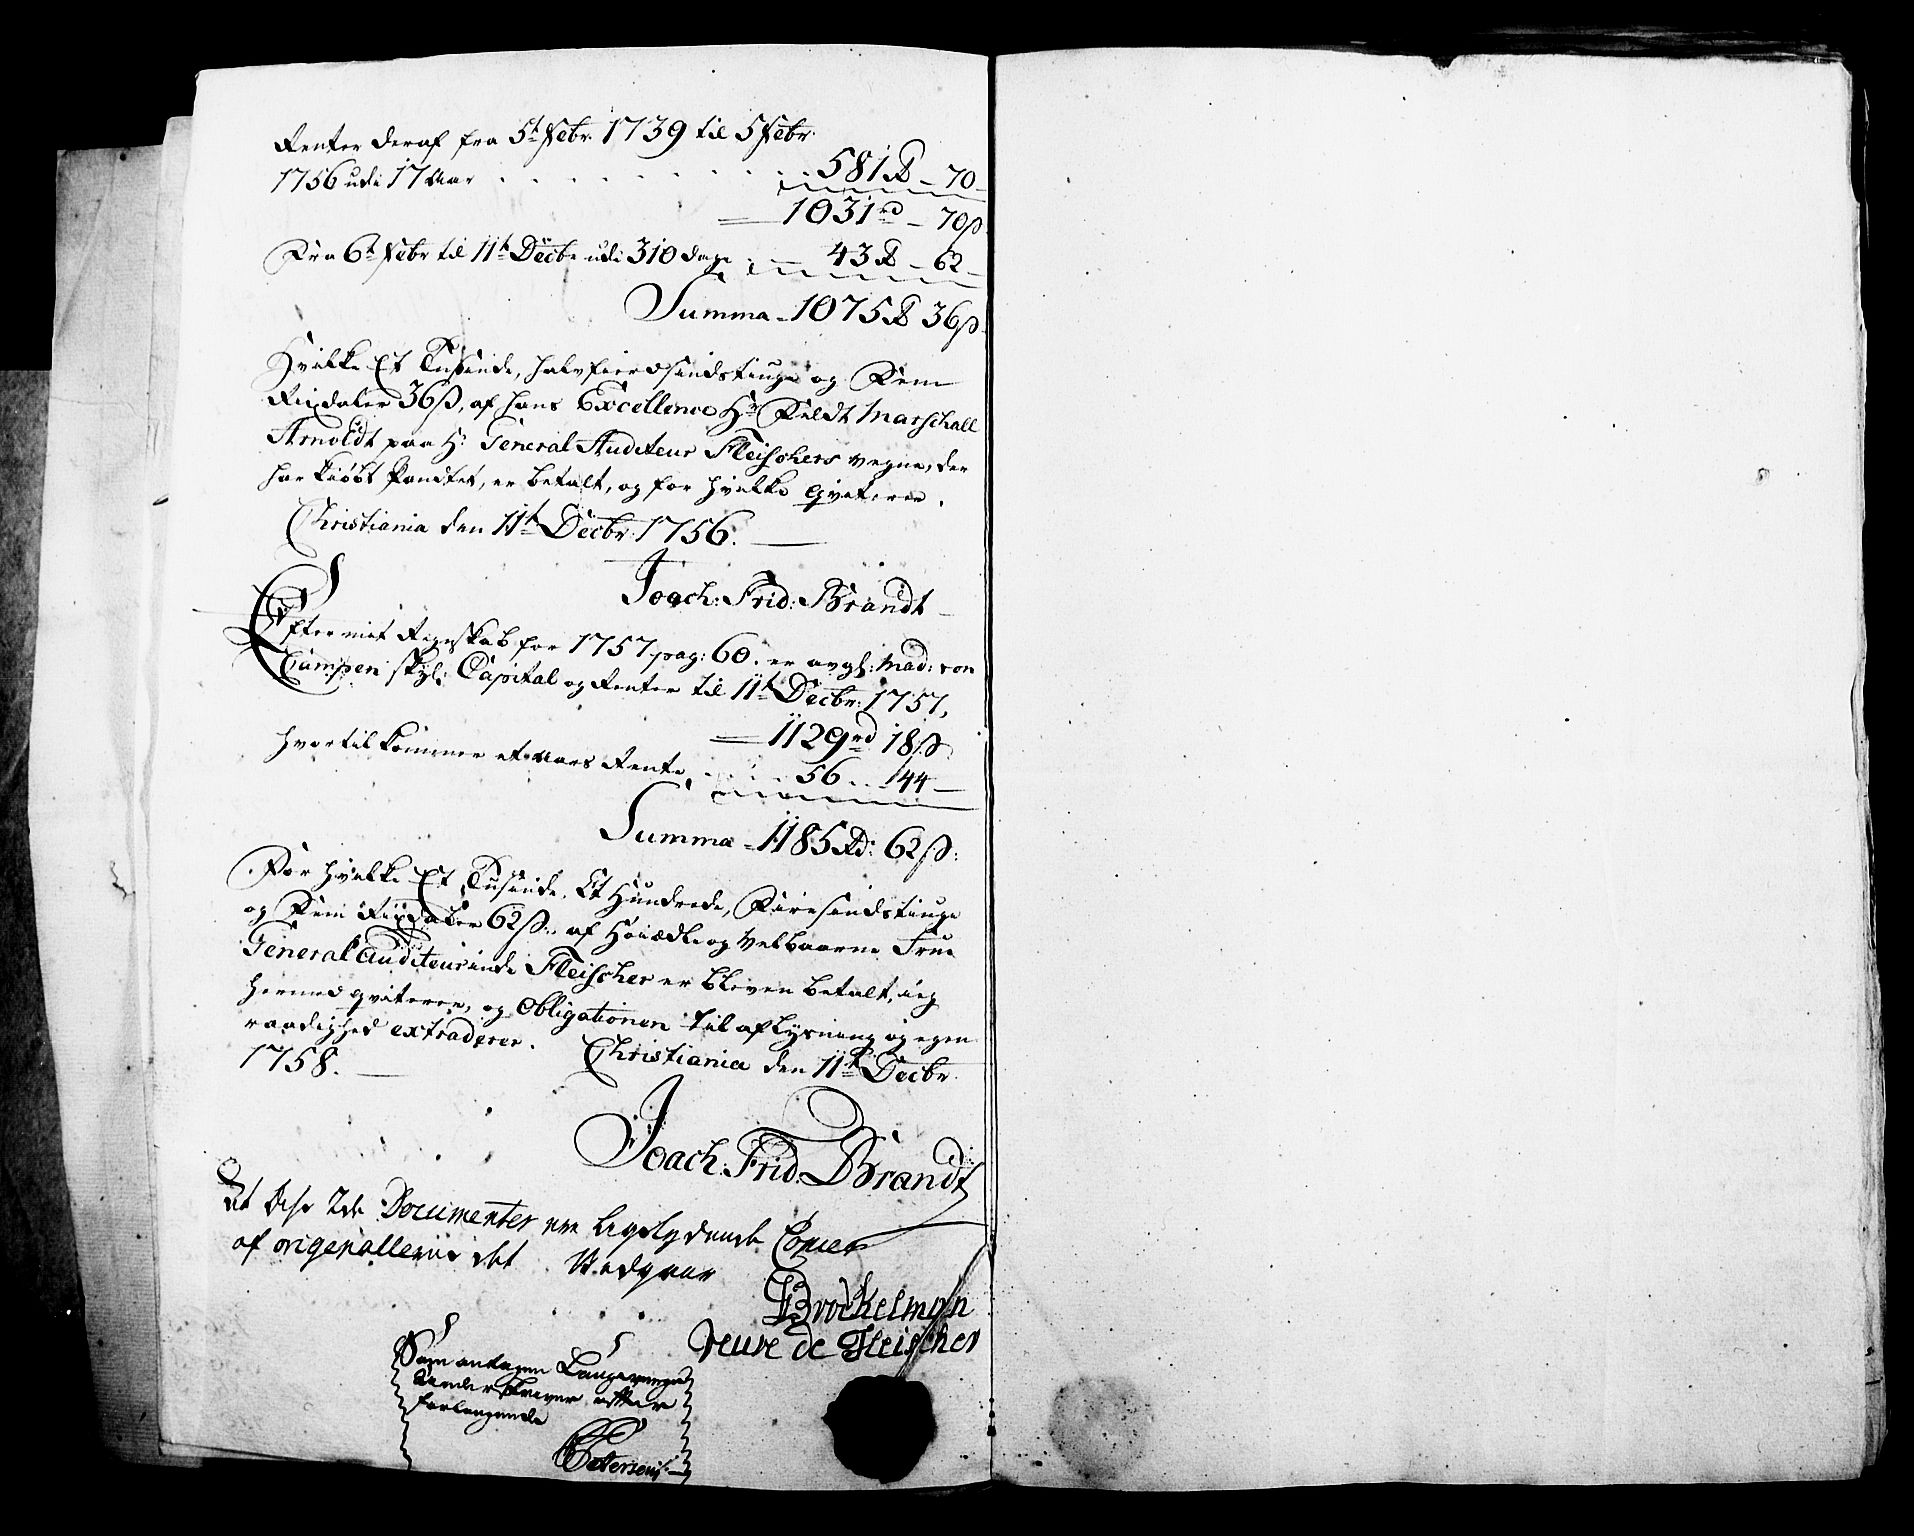 Renter deraf fra 5t Febr. 1739 til 5 Febr.
1756 udi 17 Aar . . . . . . . . . . 581 Rd – 70 –
1031 rd – 70 ß
Fra 6t Febr til 11t Decbr udi 310 dage . – 43 Rd – 62 –
Summa – 1075 Rd 36 ß
Hvilke Et Tusinde, halvfierdsindstiuge og Fem
Rixdaler 36 ß, af hans Excellence Hr Feldt Marschall
Arnoldt paa H: General Auditeur Fleischers vegne, der
har kiøbt Pandtet, er betalt, og for hvilke qviterer.
Christiania den 11t Decbr 1756.
Joach: Frid: Brandt
Efter mit Regnskab for 1757 pag: 60. er avgl: Mad: von
Campen skyl: Capital og Renter til 11t Decbr: 1757,
1129 rd 18 ß
hvortil kommer et Aars Rente, . . . . 56 . . 144 –
Summa – 1185 Rd: 62 ß:
For hvilke Et Tusinde, Et Hundrede, Firesindstiuge
og Fem Rixdaler 62 ß. af Høiædle og Velbaarne Frue
General Auditeurinde Fleischer er bleven betalt, ieg
hermed qviterer, og Obligationen til aflysning og egen
raadighed extraderer. Christiania den 11t Decbr
1758.
Joach: Frid: Brandt
At disse 2de Documenter ere ligelydende Copier
af originallerne det Vedgaar
Brockelman
veuve de Fleischer
Som antagen Laugverge
underskriver efter
forlangende
Petersen